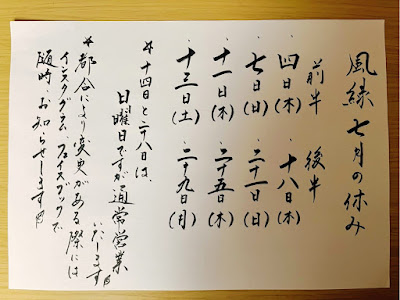 風縁 七月の休み
前半 後半
・四日(木) ・十八日(木)
・七日(日) ・二十一日(日)
・十一日(木) ・二十五日(木)
・十三日(土) ・二十九日(月)
*十四日と二十八日は、
日曜日ですが通常営業
いたします
*都合により変更がある際には
インスタグラム、フェイスブックで
随時、お知らせします